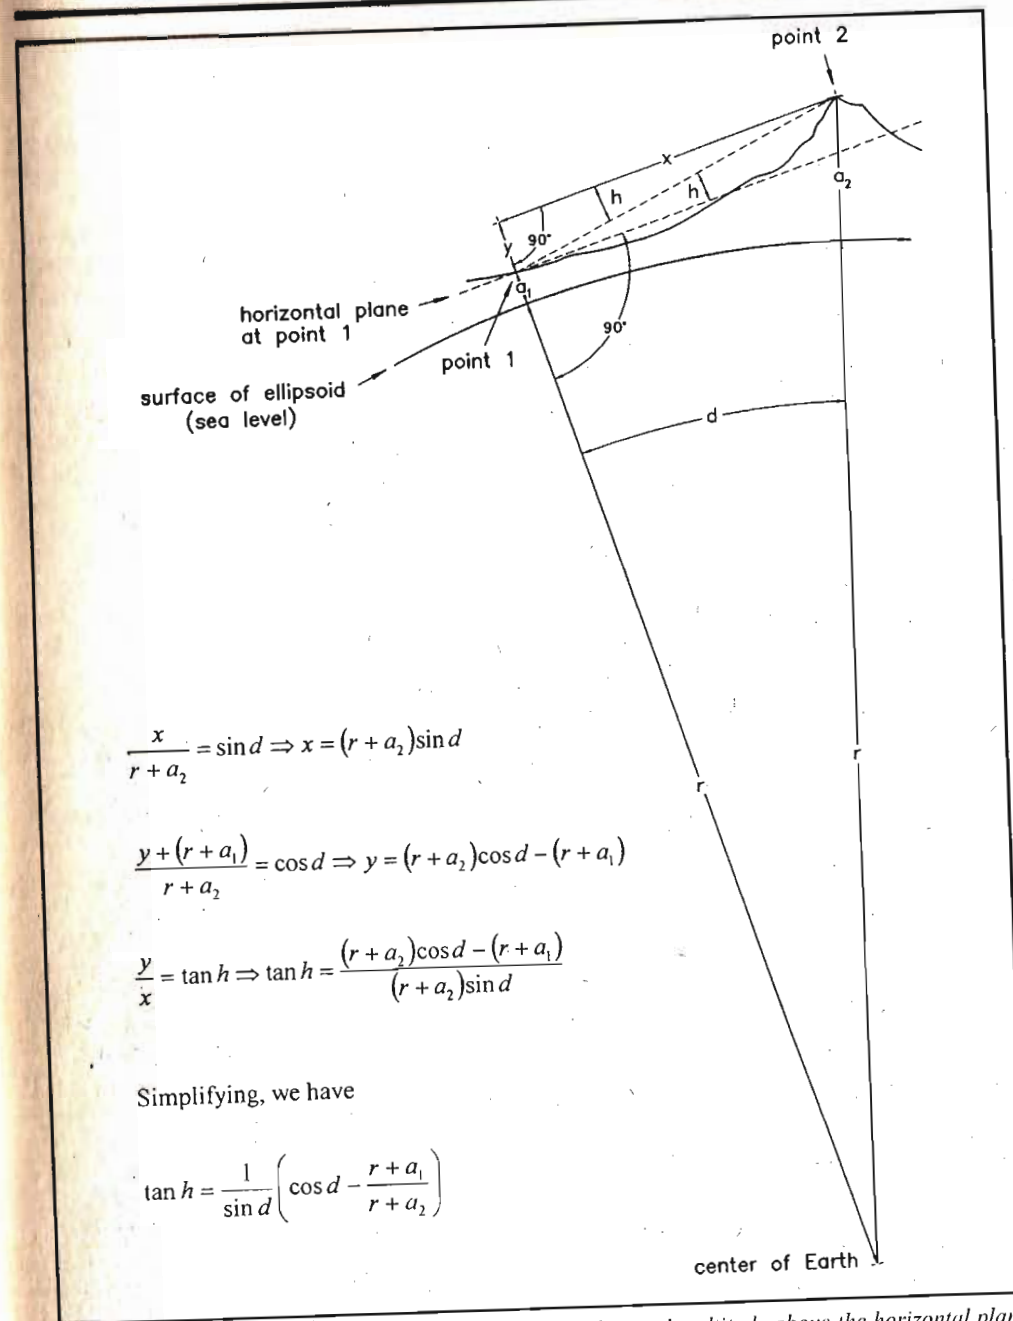 point 2
x
h
h
a₂
y
90°
a₁
horizontal plane
at point 1
90°
point 1
surface of ellipsoid
(sea level)
d
r
r
x / (r + a₂) = sin d ⇒ x = (r + a₂)sin d
(y + (r + a₁)) / (r + a₂) = cos d ⇒ y = (r + a₂)cos d − (r + a₁)
y / x = tan h ⇒ tan h = ((r + a₂)cos d − (r + a₁)) / ((r + a₂)sin d)
Simplifying, we have
tan h = 1 / sin d (cos d − (r + a₁) / (r + a₂))
center of Earth
above the horizontal plan